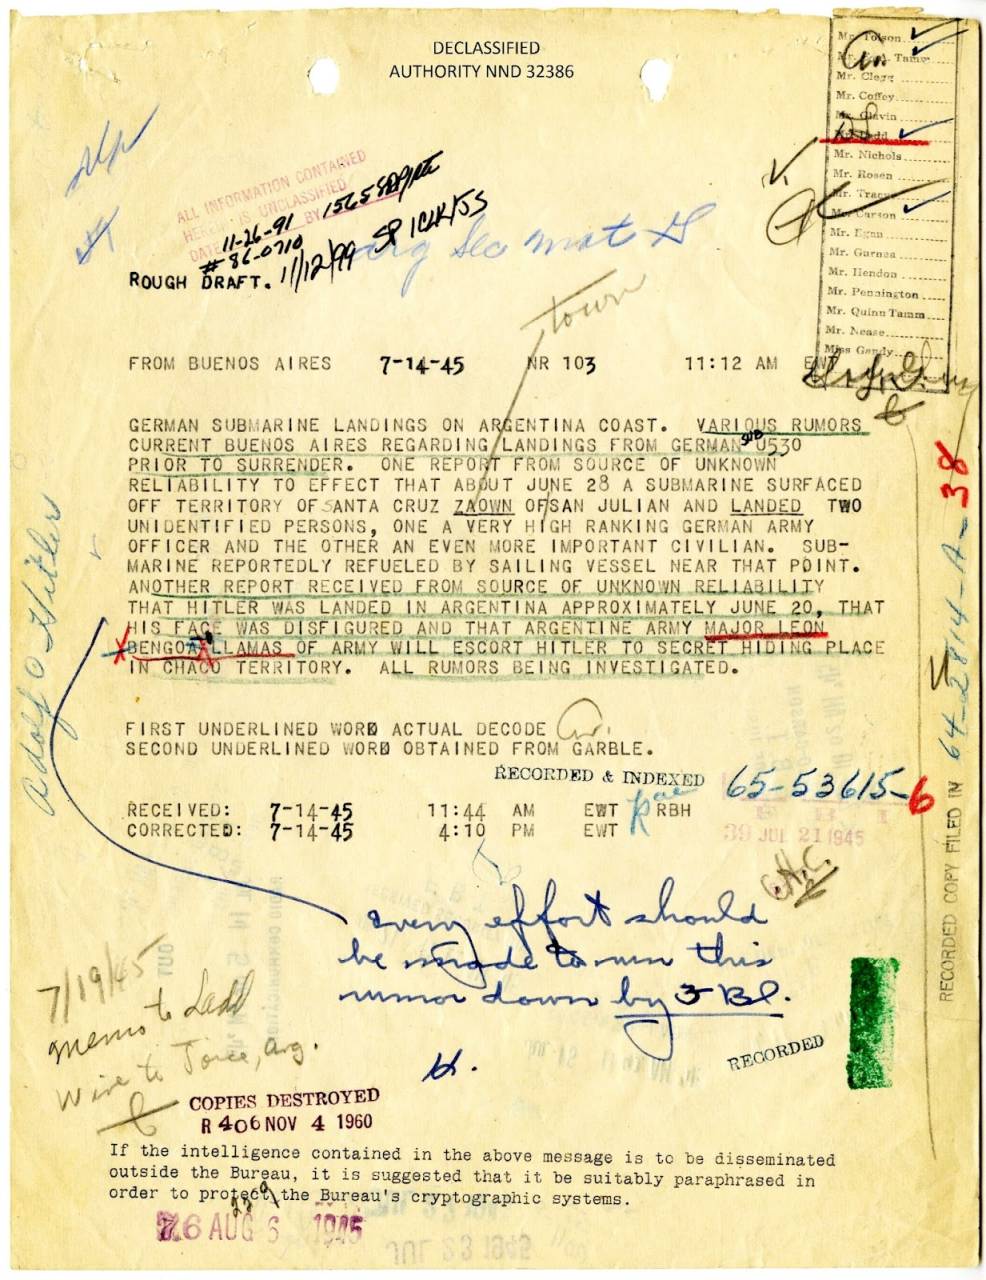 DECLASSIFIED
AUTHORITY NND 32386
Mr. Tolson
Mr. Tamm
Mr. Clegg
Mr. Coffey
Mr. Glavin
Mr. Ladd
Mr. Nichols
Mr. Rosen
Mr. Tracy
Mr. Carson
Mr. Egan
Mr. Gurnea
Mr. Hendon
Mr. Pennington
Mr. Quinn Tamm
Mr. Nease
Miss Gandy
ALL INFORMATION CONTAINED
HEREIN IS UNCLASSIFIED
DATE 11-26-91 BY 1565
#86-0710
11/12/99
ROUGH DRAFT.
town
FROM BUENOS AIRES 7-14-45 NR 103 11:12 AM EWT
GERMAN SUBMARINE LANDINGS ON ARGENTINA COAST. VARIOUS RUMORS
CURRENT BUENOS AIRES REGARDING LANDINGS FROM GERMAN SUB U530
PRIOR TO SURRENDER. ONE REPORT FROM SOURCE OF UNKNOWN
RELIABILITY TO EFFECT THAT ABOUT JUNE 28 A SUBMARINE SURFACED
OFF TERRITORY OF SANTA CRUZ ZAOWN OF SAN JULIAN AND LANDED TWO
UNIDENTIFIED PERSONS, ONE A VERY HIGH RANKING GERMAN ARMY
OFFICER AND THE OTHER AN EVEN MORE IMPORTANT CIVILIAN. SUB-
MARINE REPORTEDLY REFUELED BY SAILING VESSEL NEAR THAT POINT.
ANOTHER REPORT RECEIVED FROM SOURCE OF UNKNOWN RELIABILITY
THAT HITLER WAS LANDED IN ARGENTINA APPROXIMATELY JUNE 20, THAT
HIS FACE WAS DISFIGURED AND THAT ARGENTINE ARMY MAJOR LEON
BENGOA LLAMAS OF ARMY WILL ESCORT HITLER TO SECRET HIDING PLACE
IN CHACO TERRITORY. ALL RUMORS BEING INVESTIGATED.
FIRST UNDERLINED WORD ACTUAL DECODE
SECOND UNDERLINED WORD OBTAINED FROM GARBLE.
RECORDED & INDEXED 65-53615-6
RECEIVED: 7-14-45 11:44 AM EWT RBH
CORRECTED: 7-14-45 4:10 PM EWT
39 JUL 21 1945
Adolf Hitler
RECORDED COPY FILED IN 64-2814-A-38
every effort should
be made to run this
rumor down by FBI.
H.
7/19/45
memo to Ladd
Wire to Joice, Arg.
RECORDED
COPIES DESTROYED
R 406 NOV 4 1960
If the intelligence contained in the above message is to be disseminated
outside the Bureau, it is suggested that it be suitably paraphrased in
order to protect the Bureau's cryptographic systems.
76 AUG 6 1945
JUL 23 1945